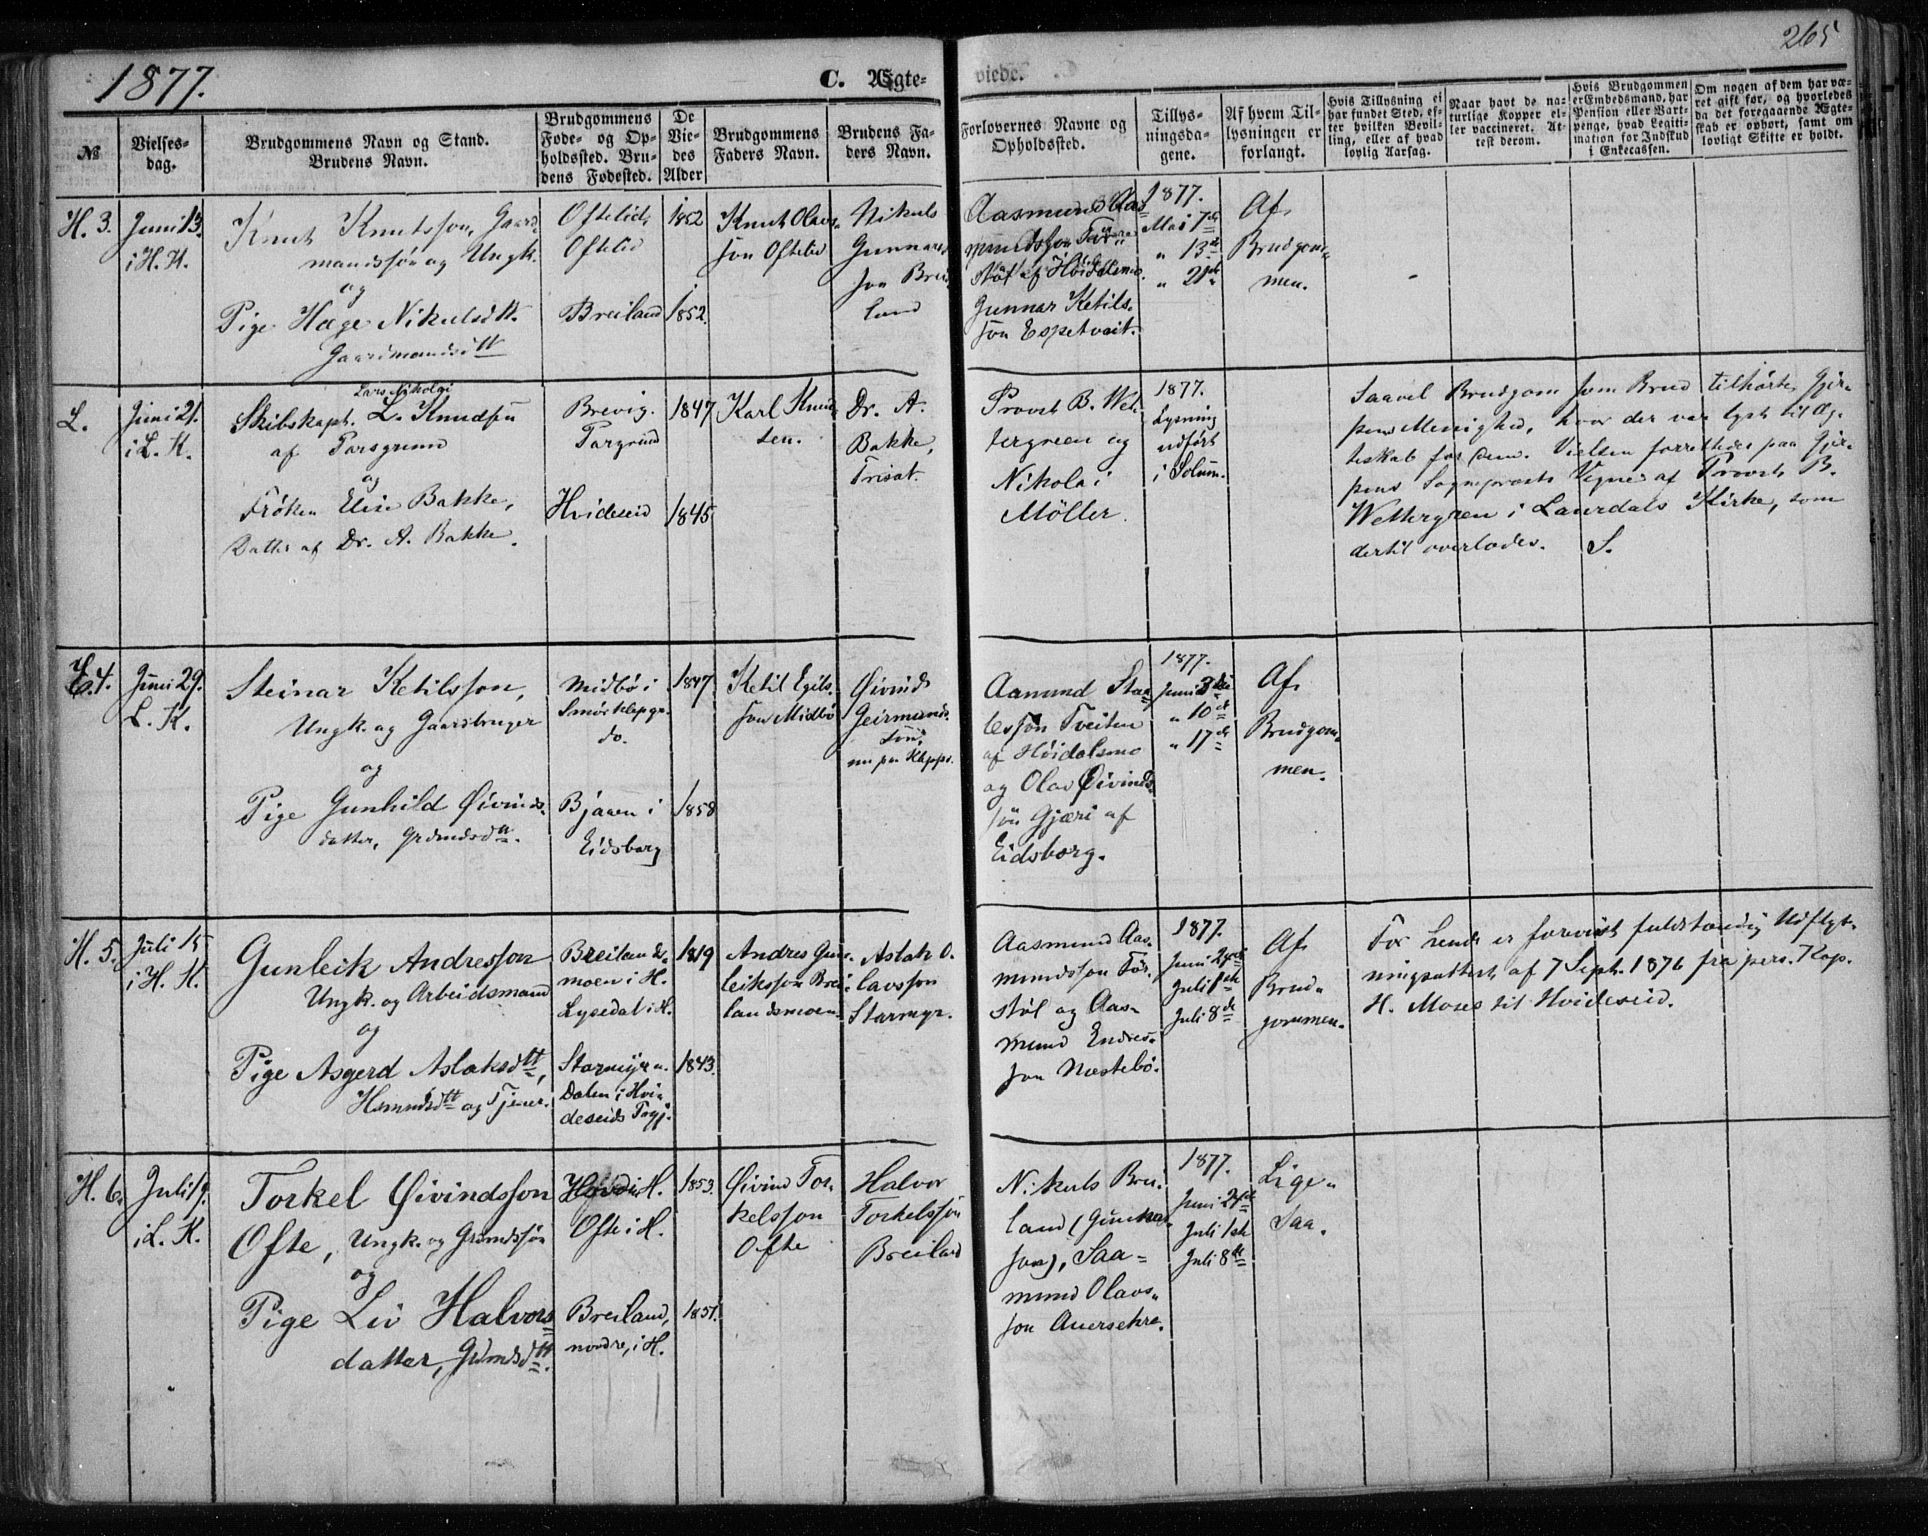 1877.
C. Ægte-
viede.
265
№
Vielses-
dag.
Brudgommens Navn og Stand.
Brudens Navn.
Brudgommens
Føde- og Op-
holdssted. Bru-
dens Fødested.
De
Vie-
des
Alder
Brudgommens
Faders Navn.
Brudens Fa-
ders Navn.
Forlovernes Navne og
Opholdssted.
Tillys-
ningsda-
gene.
Af hvem Til-
lysningen er
forlangt.
Hvis Tillysning ei
har fundet Sted, ef-
ter hvilken Bevil-
ling, eller af hvad
lovlig Aarsag.
Naar havt de na-
turlige Kopper el-
ler vaccineret. At-
test derom.
Hvis Brudgommen
er Embedsmand, har
Pension eller Vart-
penge, hvad Legiti-
mation for Indskud
i Enkecassen.
Om nogen af dem har væ-
ret gift før, og hvorledes
da det foregaaende Ægte-
skab er ophørt, samt om
lovligt Skifte er holdt.
H. 3.
Juni 13.
i H. K.
Knut Knutsson, Gaard-
mandssøn og Ungk.
og
Pige Hæge Nikulsdtt.
Gaardmandsdtt
Oftelid,
Oftelid
Breiland
1852
1852.
Knut Olavs-
son Oftelid
Nikuls
Gunnars-
son Brei-
land
Aasmund Aas-
mundsson
støl af Høidalsmo.
Gunnar Ketils-
son Espetveit.
1877.
Mai 7de
" 13de
" 21de
Af
Brudgom-
men.
L.
Juni 21.
i L. K.
Lars Nikolai
Skibskapt. L. Knudsen
af Porsgrund
og
Frøken Elise Bakke,
Datter af Dr. A. Bakke.
Brevig.
Porgrund
Hvideseid
1847
1845
Karl Knud-
sen.
Dr. A.
Bakke,
Trisæt.
Provst B. Wet-
tergreen og
Nikolai
Möller.
1877.
Lysning
udført
i Solum.
Saavel Brudgom som Brud tilhørte Gjer-
pens Menighed, hvor der var lyst til Æg-
teskab for dem. Vielsen forrettedes paa Gjer-
pens Sognepræsts Vegne af Provst B.
Wettergreen i Laurdals Kirke, som
dertil overlodes. S.
E. 4.
Juni 29.
L. K.
Steinar Ketilsson,
Ungk. og Gaardbruger
og
Pige Gunhild Øivinds-
datter, Grdmdsdtt.
Midbø i
Smørklepgr.
do.
Bjaaen i
Eidsborg
1847
1858
Ketil Egils-
son Midbø
Øivind
Geirmund-
søn,
nu paa Klepps.
Aamund Staa-
lesson Tveiten
af Høidalsmo
og Olav Øivinds-
søn Gjæri af
Eidsborg.
1877.
Juni 3die
" 10de
" 17de
Af
Brudgom-
men.
H. 5.
Juli 15
i H. K.
Gunleik Andresson
Ungk. og Arbeidsmand
og
Pige Asgerd Aslaksdtt,
Hsmndsdtt og Tjener.
Breilands-
moen i H.
Lysedal i H.
Starmyr u.
Dalen i Hvi-
deseids Pregj.
1849
1843.
Andres Gun-
leiksson Brei-
landsmoen
Aslak O-
lavsson
Starmyr.
Aasmund Aas-
mundsson Før-
støl og Aas-
mund Endres-
son Næstebø.
1877.
Juni 24de
Juli 1ste
Juli 8de
Af
Brud-
gommen.
For hende er forevist fuldstændig Udflyt-
ningsattest af 7 Sept. 1876 fra pers. Kap.
H. Moses til Hvideseid.
H. 6.
Juli 19.
i L. K.
Torkel Øivindsson
Ofte, Ungk. og Grdmdssøn
og
Pige Liv Halvors-
datter, Grdmdsdtt.
i H.
Ofte i H.
Breiland,
nordre, i H.
1853.
1851.
Øivind Tor-
kelsson
Ofte
Halvor
Torkelssøn
Breiland
Nikuls Brei-
land (Gunnar-
son), Saa-
mund Olavs-
son Auersekre.
1877.
Juni 24de
Juli 1ste
Juli 8de
Lige-
saa.